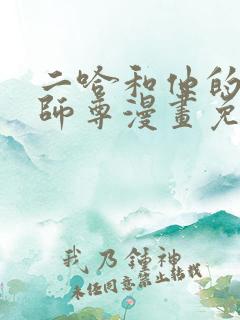 二哈和他的
師尊漫畫免
我乃鍾神
未经同意禁止转载